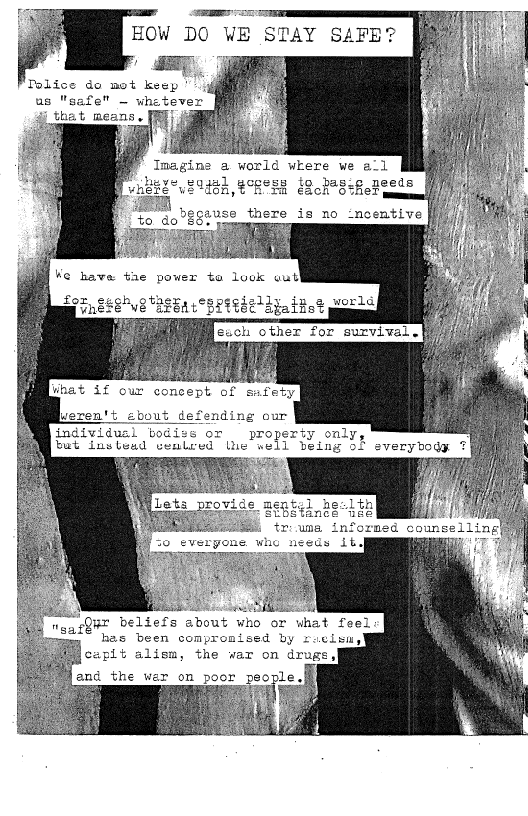 HOW DO WE STAY SAFE?
Police do not keep
us "safe" - whatever
that means.
Imagine a world where we all
have equal access to basic needs
where we don,t harm each other
because there is no incentive
to do so.
We have the power to look out
for each other, especially in a world
where we arent pitted against
each other for survival.
What if our concept of safety
weren't about defending our
individual bodies or property only,
but instead centred the well being of everybody ?
Lets provide mental health
substance use
trauma informed counselling
to everyone who needs it.
Our beliefs about who or what feels
"safe" has been compromised by racism,
capit alism, the war on drugs,
and the war on poor people.